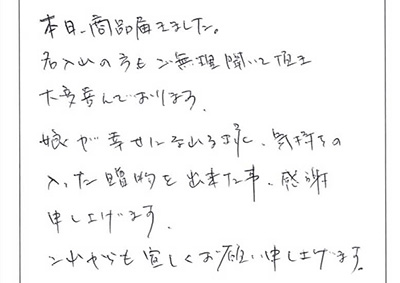 本日、商品届きました。
名入れの方もご無理聞いて頂き
大変喜んでおります。
娘が幸せになれる様に、気持ちの
入った贈物を出来た事、感謝
申し上げます。
これからも宜しくお願い申し上げます。